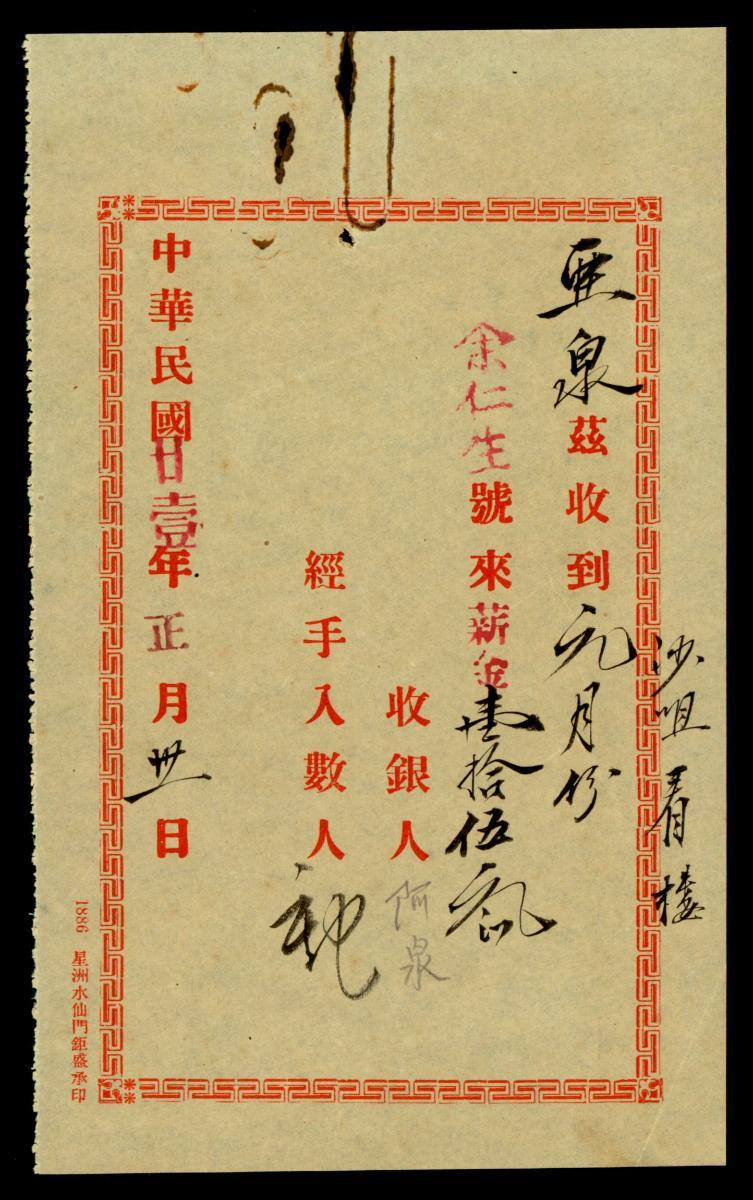 沙咀看樓
亜泉茲收到元月份
余仁生號來薪金壹拾伍元
收銀人阿泉
經手入數人
中華民國廿壹年正月卅一日
1886 星洲水仙門鉅盛承印